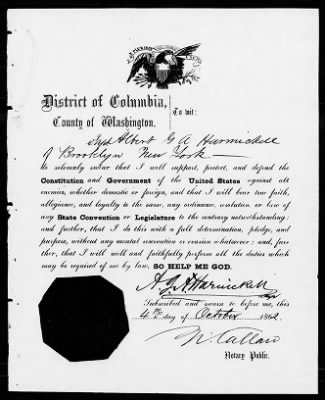 District of Columbia,
County of Washington.
To wit:
Albert G A Harnickell
of Brooklyn New York
Do solemnly swear that I will support, protect, and defend the
Constitution and Government of the United States against all
enemies, whether domestic or foreign, and that I will bear true faith,
allegiance, and loyalty to the same, any ordinance, resolution or law of
any State Convention or Legislature to the contrary notwithstanding;
and further, that I do this with a full determination, pledge, and
purpose, without any mental reservation or evasion whatsoever; and, fur-
ther, that I will well and faithfully perform all the duties which
may be required of me by law, SO HELP ME GOD.
A. G. A. Harnickell
Subscribed and sworn to before me, this
4th day of October 1862
N. Callan
Notary Public.